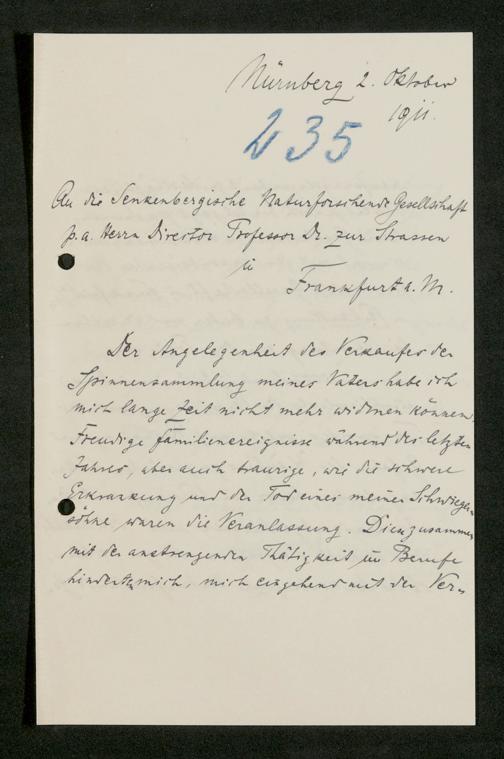 Nürnberg 2. Oktober
1911.
235
An die Senkenbergische Naturforschende Gesellschaft
p. a. Herrn Direktor Professor Dr. zur Strassen
in
Frankfurt a. M.
Der Angelegenheit des Verkaufes der
Spinnensammlung meines Vaters habe ich
mich lange Zeit nicht mehr widmen können.
Freudige Familienereignisse während des letzten
Jahres, aber auch traurige, wie die schwere
Erkrankung und der Tod eines meiner Schwieger„
söhne waren die Veranlassung. Dies zusammen
mit der anstrengenden Thätigkeit im Berufe
hinderte mich, mich eingehend mit der Ver„